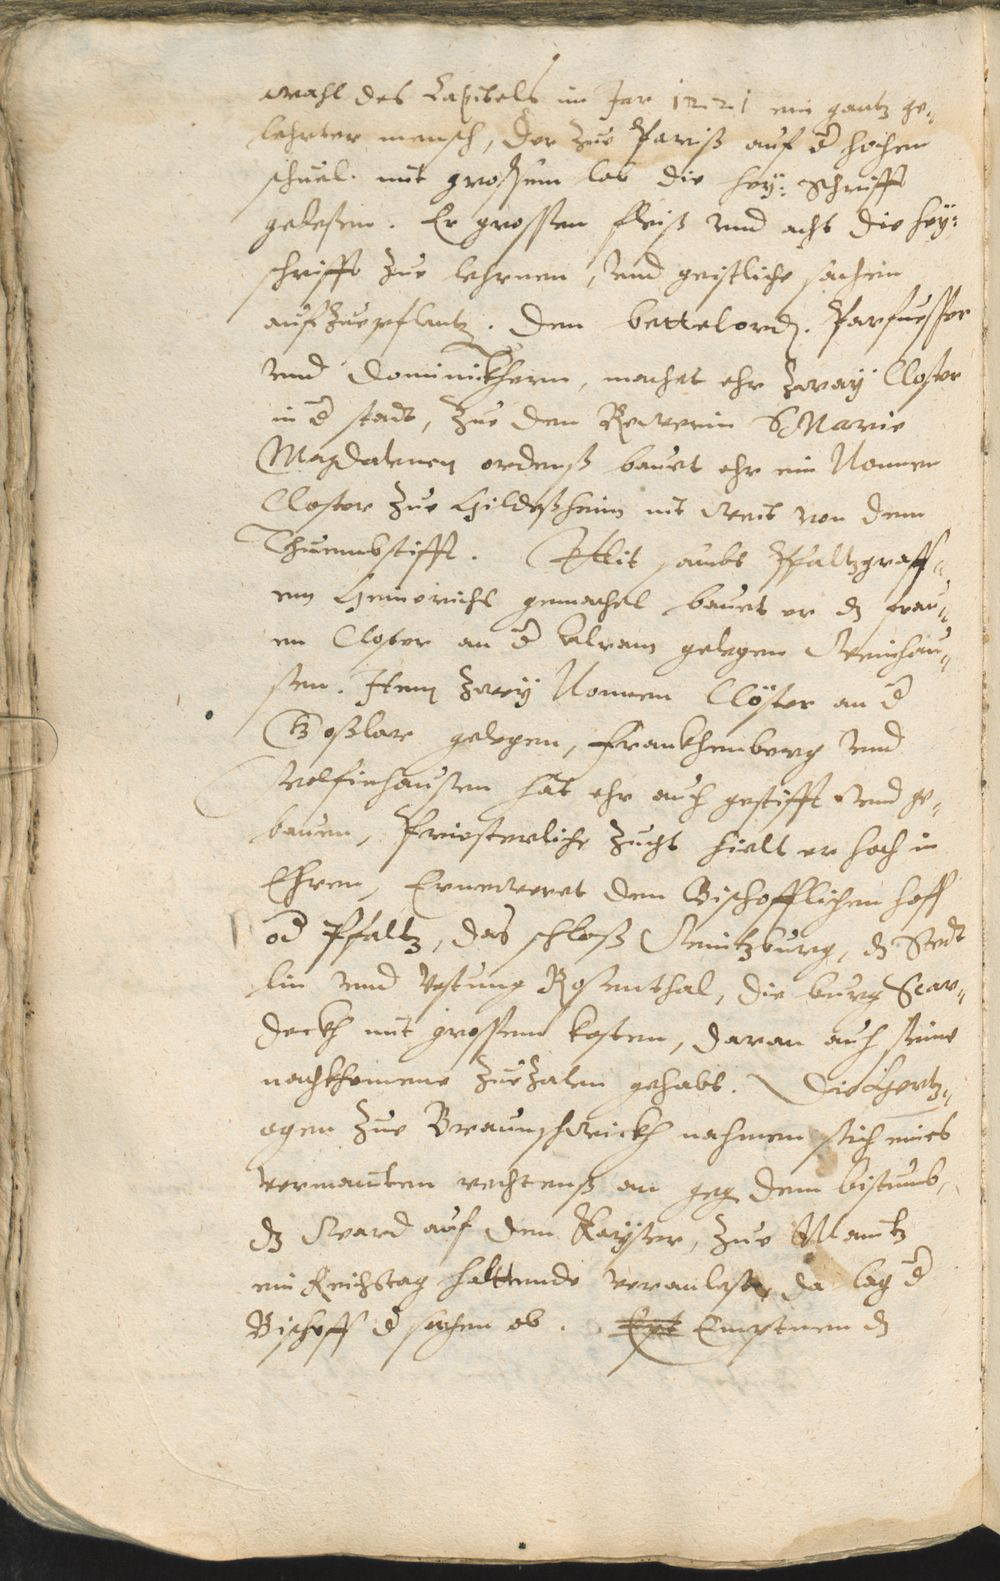 wahl des Capitels im Jar 1221 ein gantz ge-
lehrter mensch, der zue Pariß auf d hochen
schuel. mit großem lob die hey: Schrifft
geleßen. Er grossen fleiß vnd acht die hey:
schrifft zue lehrnen, vnd geistliche sachen
aufzuepflantz. Den bettelord. Parfuesser
vnd Dominickhern, machet ehr zway Closter
in d stadt, zue den Rewerin S Marie
Magdalenen ordenß bauet ehr ein Nonnen
Closter zue Hildeßheim nit weit von dem
Thuembstifft. Mit sambt Pfaltzgraff-
en Heinrichs gemachel bauet er dz frau-
en Closter an d gelegen Weinhau-
sen. Item zwey Nonnen Clöster an d
Goßlar gelegen, Frankhenberg vnd
Wolfinhausen hat ehr auch gestifft vnd ge-
bauen, Priesterliche zucht hielt er hoch in
Ehren, Erneweret den Bischofflichen hoff
od Pfaltz, das schloß Wintzburg, dz Stedt
lin vnd Vestung Rosenthal, die burg Scar-
deckh mit grossem kosten, daran auch seine
nachkhomene zuezalen gehabt. Die Hertz-
ogen zue Braunschweickh nahmen sich eines
vermainten rechtenß an geg dem bistumb,
dz ward auf den Kayser, zue Maintz
ein Reichstag haltende veranlast, da lag d
Bischoff d sachen ob. Emptmen dz